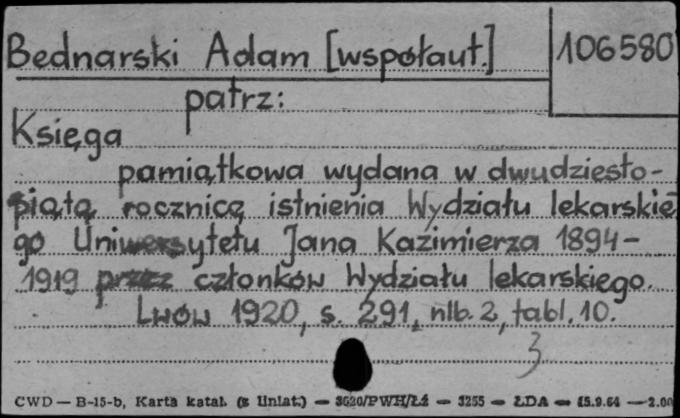 Bednarski Adam [współaut.] 106580
patrz:
Księga
pamiątkowa wydana w dwudziesto-
piątą rocznicę istnienia Wydziału lekarskie
go Uniwersytetu Jana Kazimierza 1894-
1919 przez członków Wydziału lekarskiego.
Lwów 1920, s. 291, nlb. 2, tabl. 10.
3
CWD — B-15-b, Karta katal. (z liniat.) — 3620/PWH/Łź — 3255 — ŁDA — 15.9.64 — 2.00